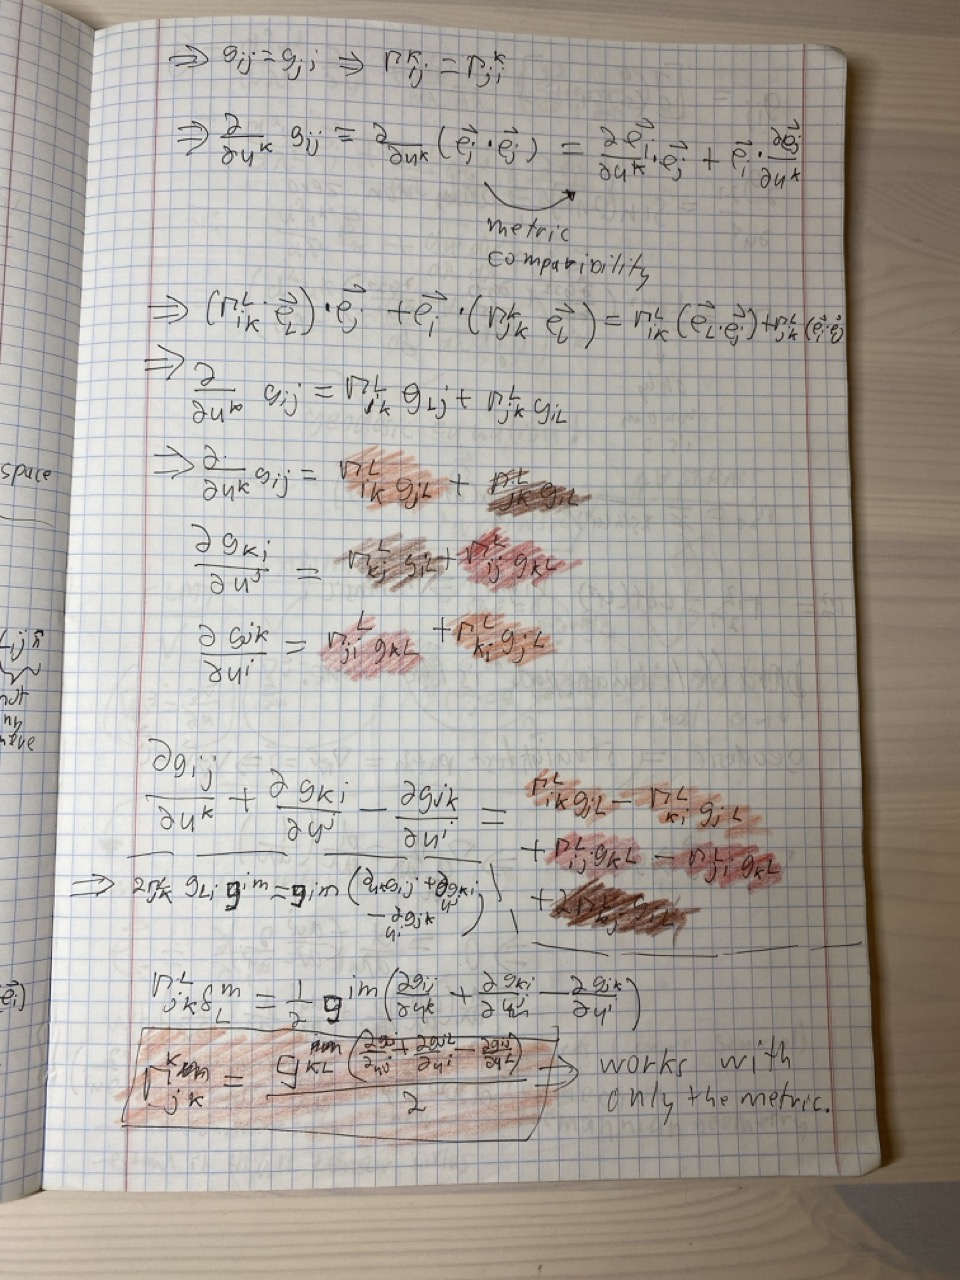 ⇒ gij = gji ⇒ Γ^k_ij = Γ^k_ji
⇒ ∂/∂u^k gij = ∂/∂u^k (e⃗i · e⃗j) = ∂e⃗i/∂u^k · e⃗j + e⃗i · ∂e⃗j/∂u^k
metric
comparibility
⇒ (Γ^L_ik · e⃗L) · e⃗j + e⃗i · (Γ^L_jk e⃗L) = Γ^L_ik (e⃗L · e⃗j) + Γ^L_jk (e⃗i · e⃗j
⇒ ∂/∂u^k gij = Γ^L_ik gLj + Γ^L_jk giL
space
⇒ ∂/∂u^k gij = Γ^L_ik gjL + Γ^L_jk giL
∂gki/∂u^j = Γ^L_kj giL + Γ^L_ij gkL
∂gjk/∂u^i = Γ^L_ji gkL + Γ^L_ki gjL
∂gij/∂u^k + ∂gki/∂u^j − ∂gjk/∂u^i = Γ^L_ik gjL − Γ^L_ki gjL
+ Γ^L_ij gkL − Γ^L_ji gkL
+ 2Γ^L_kj giL
⇒ 2Γ^L_jk gLi g^im = g^im (∂u^k gij + ∂gki/u^j
− ∂gjk/u^i)
Γ^L_jk δ^m_L = 1/2 g^im (∂gij/∂u^k + ∂gki/∂u^j − ∂gjk/∂u^i)
works with
only the metric.